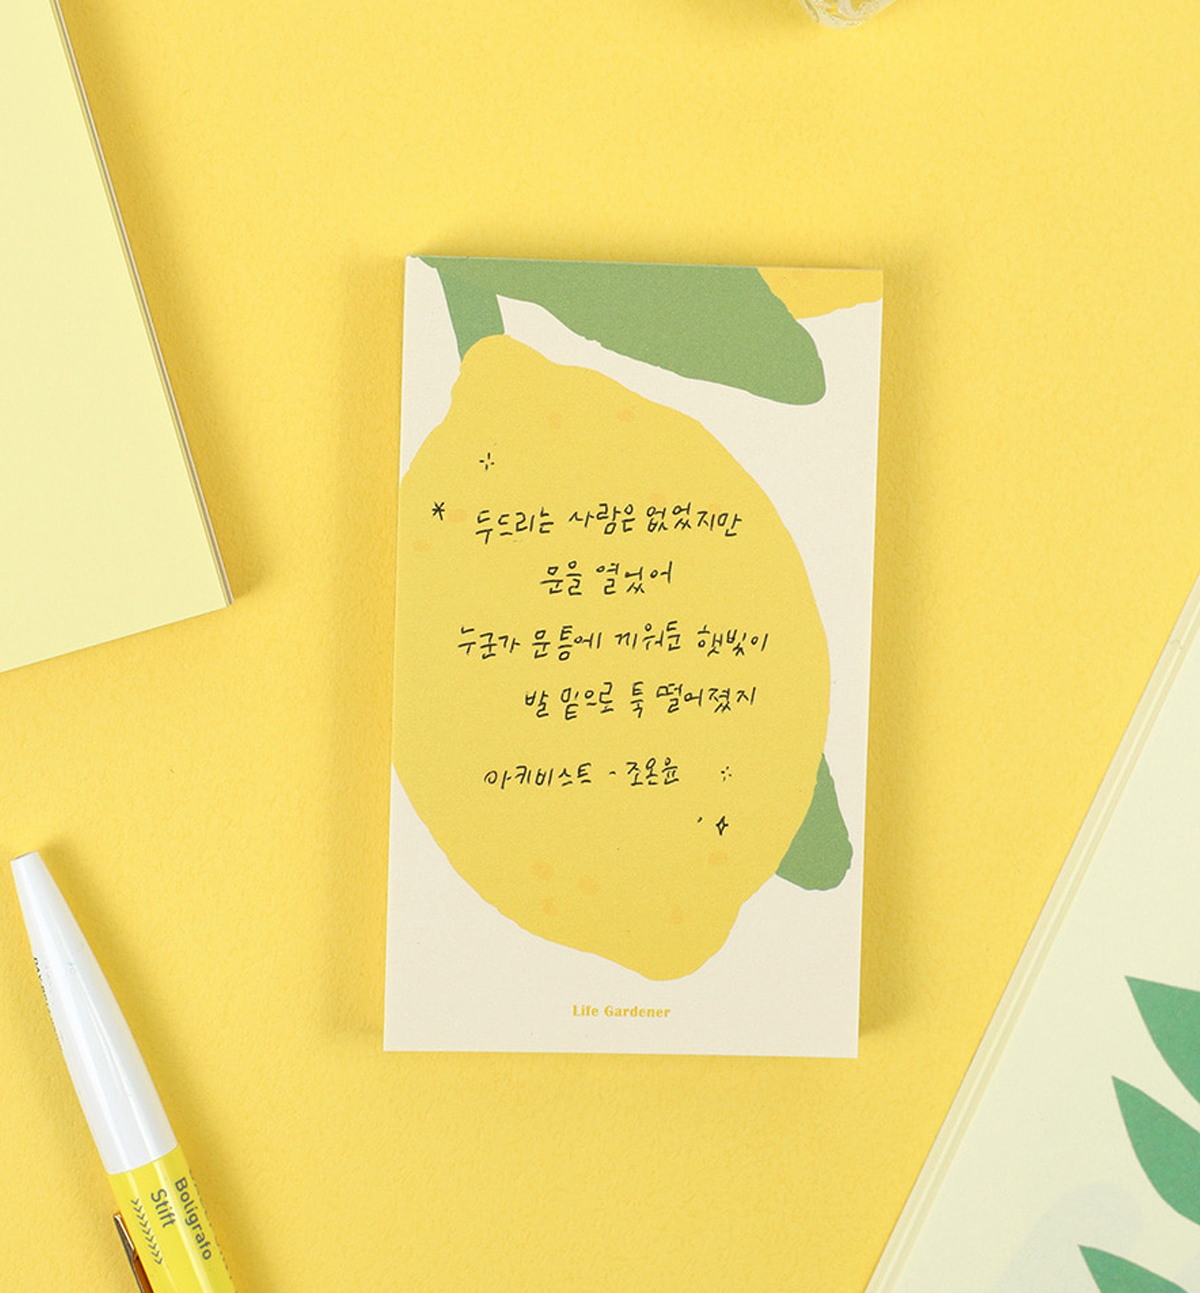 * 두드리는 사람은 없었지만
문을 열었어
누군가 문틈에 끼워둔 햇빛이
발 밑으로 툭 떨어졌지
아키비스트 - 조온윤
Life Gardener
Boligrafo
Stift